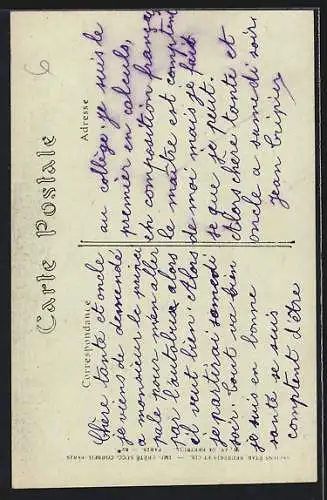 Carte Postale
Correspondance
Adresse
Chère tante et oncle
je viens de demandé
a monsieur le princi
pale pour m'en aller
par l'autobus alors
il veut bien. Alors
je partirai samedi
soir. tout va bien
je suis en bonne
santé je suis
comptent d'être
au collège. je suis le
premier en calculs,
en composition français
le maître est comptent
de moi mais je fait
se que je peut.
Alors chère tante et
oncle a samedi soir
Jean
IMP. CRÉTÉ SUCC. CORBEIL-PARIS